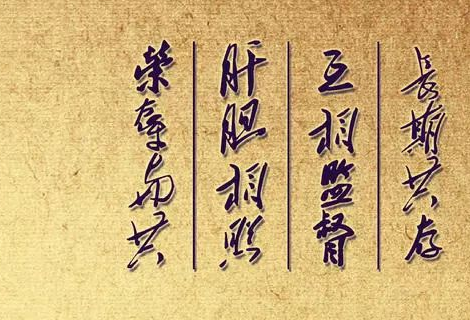 長期共存
互相監督
肝胆相照
榮辱与共